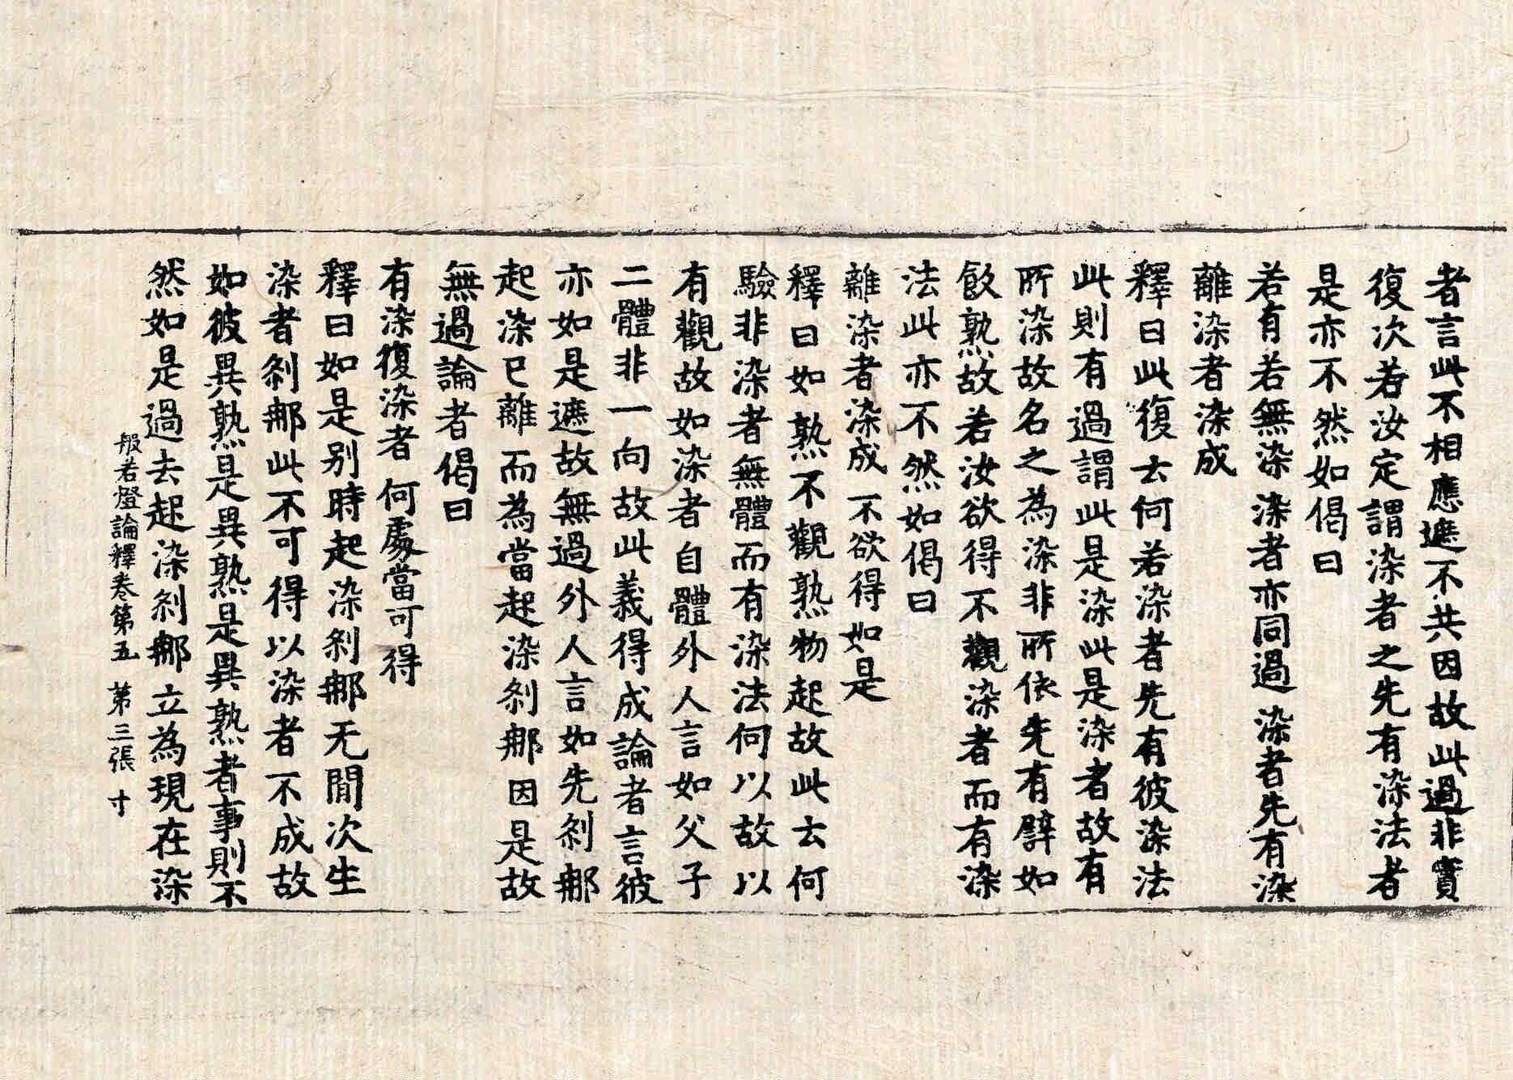 者言此不相應遮不共因故此過非實
復次若汝定謂染者之先有染法者
是亦不然如偈曰
若有若無染 染者亦同過 染者先有染
離染者染成
釋曰此復云何若染者先有彼染法
此則有過謂此是染此是染者故有
所染故名之為染非所依先有譬如
飲熟故若汝欲得不觀染者而有染
法此亦不然如偈曰
離染者染成 不欲得如是
釋曰如熟不觀熟物起故此云何
驗非染者無體而有染法何以故以
有觀故如染者自體外人言如父子
二體非一向故此義得成論者言彼
亦如是遮故無過外人言如先剎那
起染已離而為當起染剎那因是故
無過論者偈曰
有染復染者 何處當可得
釋曰如是別時起染剎那无間次生
染者剎那此不可得以染者不成故
如彼異熟是異熟是異熟者事則不
然如是過去起染剎那立為現在染
般若燈論釋卷第五 第三張 寸